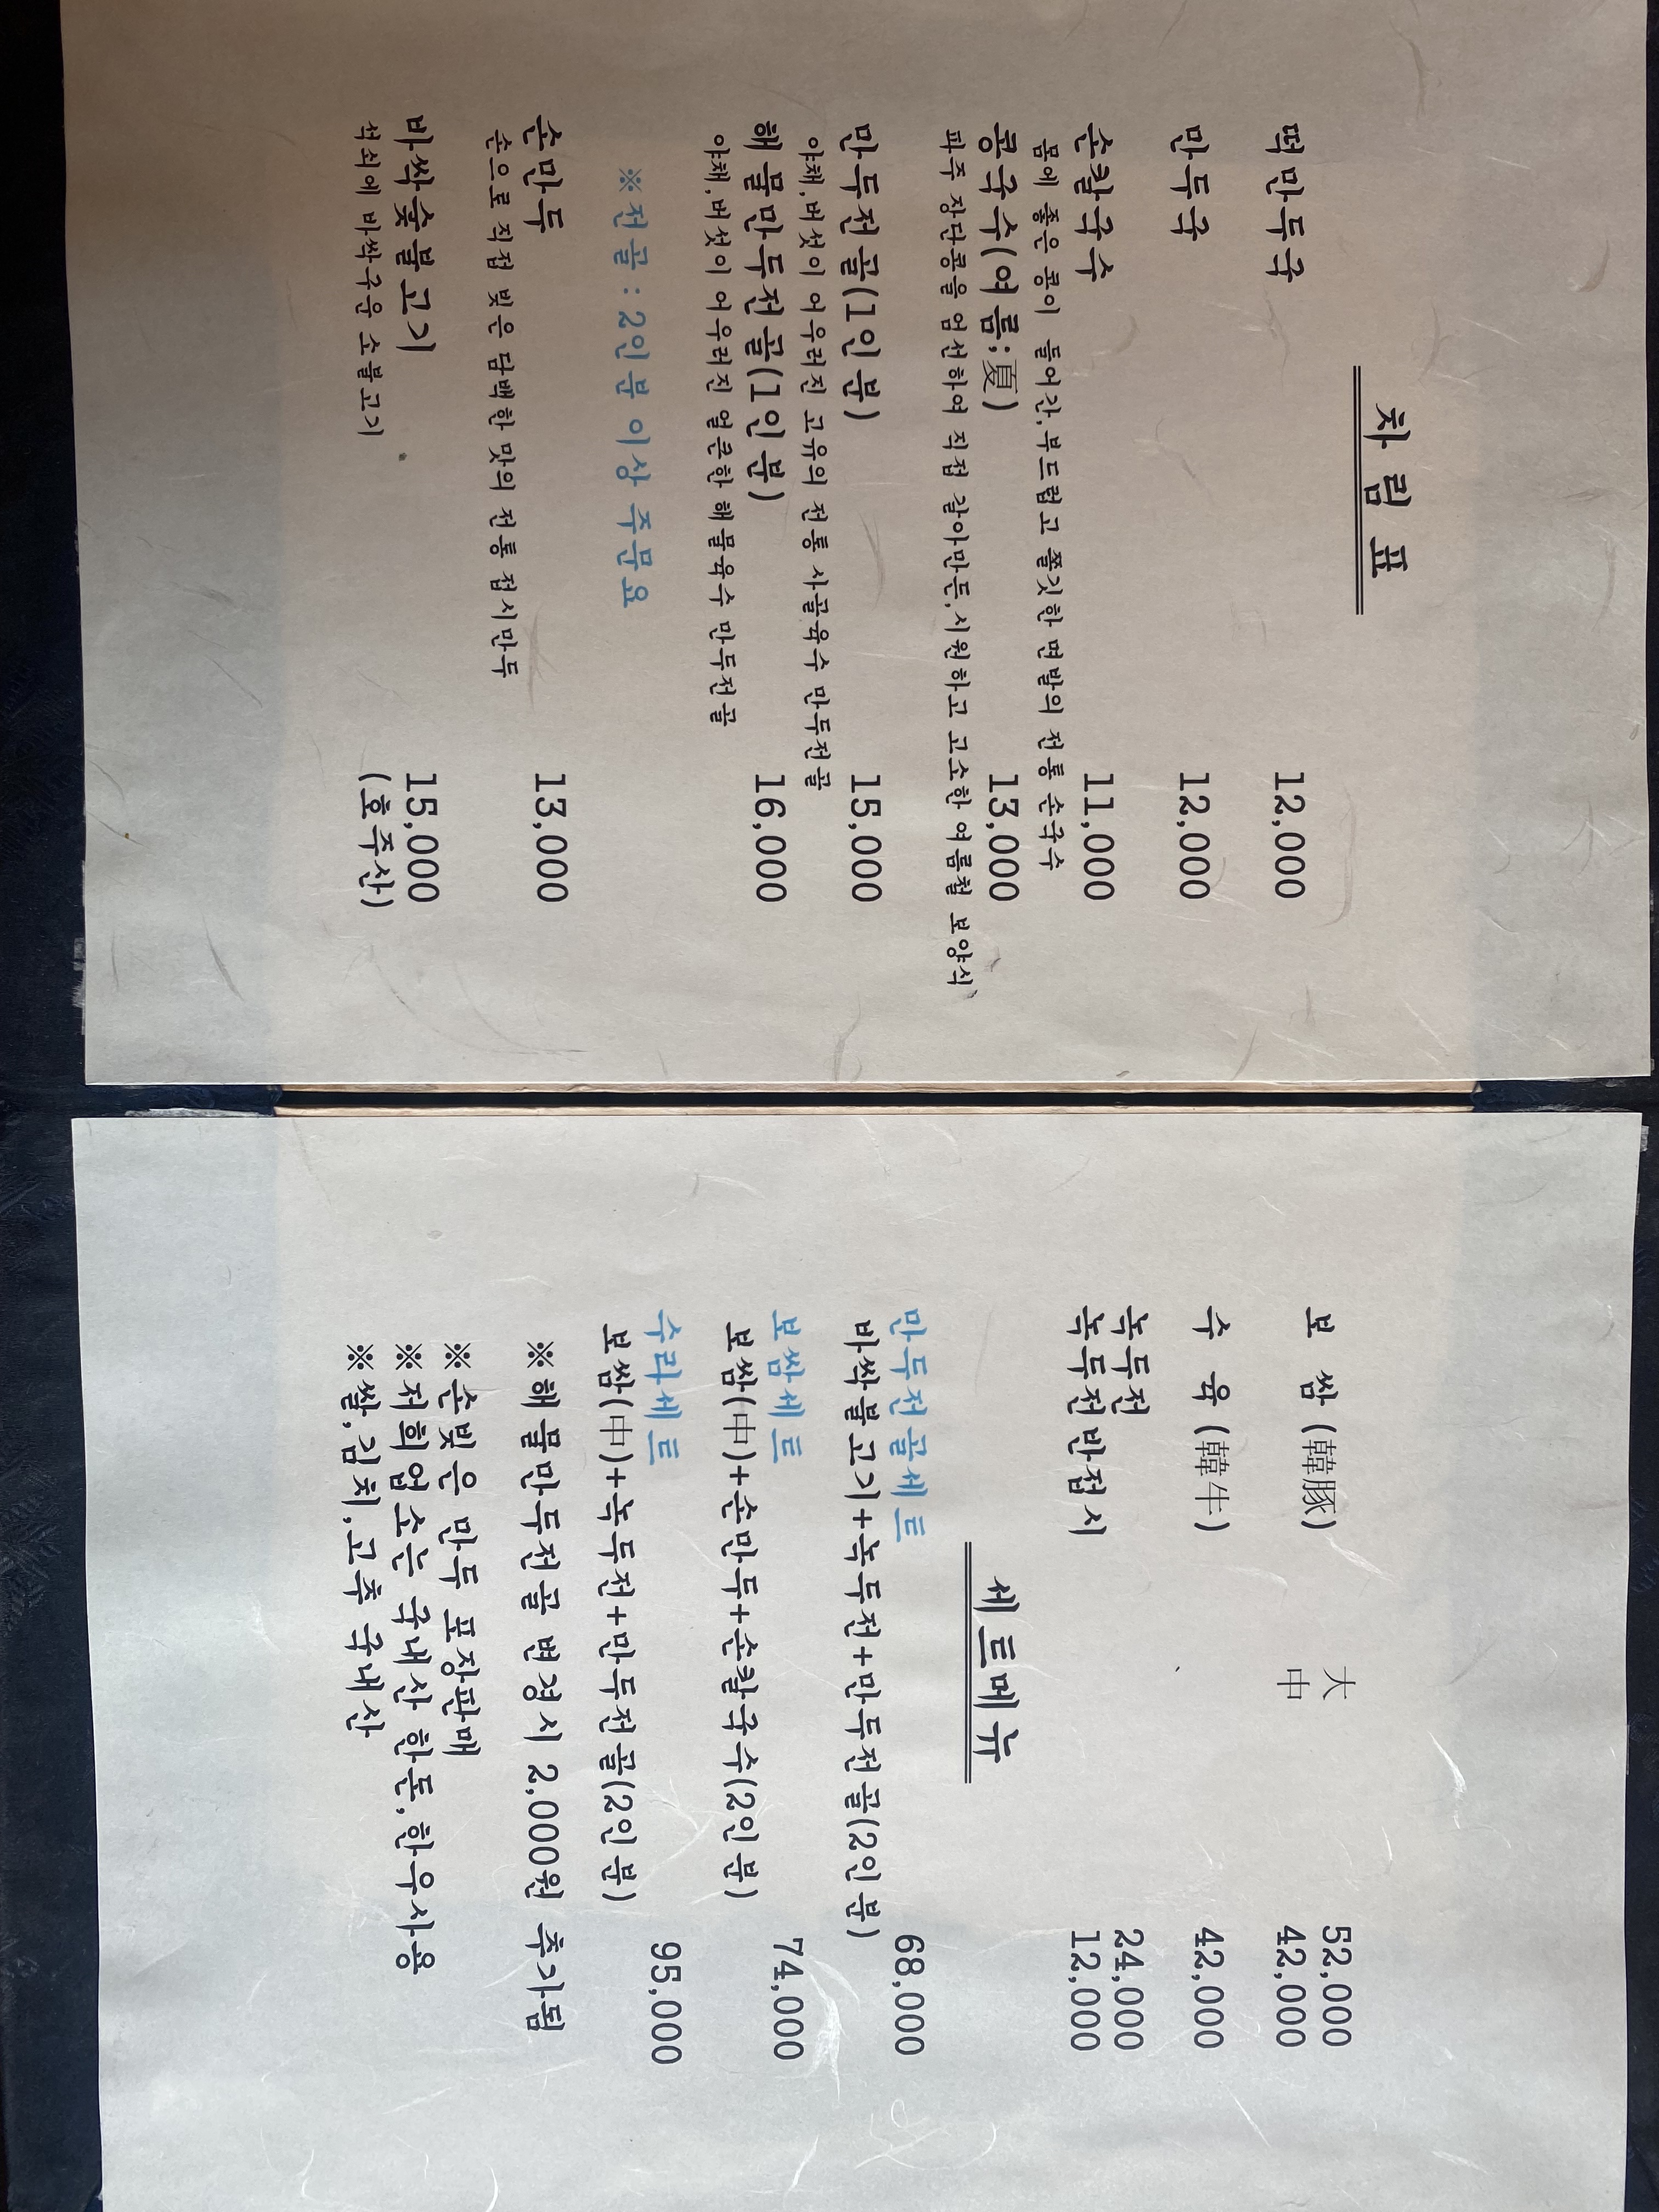 차 림 표
떡만두국 12,000
만두국 12,000
손칼국수 11,000
몸에 좋은 콩이 들어간,부드럽고 쫄깃한 면발의 전통 손국수
콩국수(여름;夏) 13,000
파주 장단콩을 엄선하여 직접 갈아만든,시원하고 고소한 여름철 보양식
만두전골(1인분) 15,000
야채,버섯이 어우러진 고유의 전통 사골육수 만두전골
해물만두전골(1인분) 16,000
야채,버섯이 어우러진 얼큰한 해물육수 만두전골
※전골:2인분 이상 주문요
손만두 13,000
손으로 직접 빚은 담백한 맛의 전통 접시만두
바싹숯불고기 15,000
석쇠에 바싹구운 소불고기 (호주산)
大 52,000
보 쌈 (韓豚)
中 42,000
수 육 (韓牛) 42,000
녹두전 24,000
녹두전반접시 12,000
세트메뉴
만두전골세트 68,000
바싹불고기+녹두전+만두전골(2인분)
보쌈세트 74,000
보쌈(中)+손만두+손칼국수(2인분)
수라세트 95,000
보쌈(中)+녹두전+만두전골(2인분)
※해물만두전골 변경시 2,000원 추가됨
※손빚은 만두 포장판매
※저희업소는 국내산 한돈,한우사용
※쌀,김치,고추 국내산